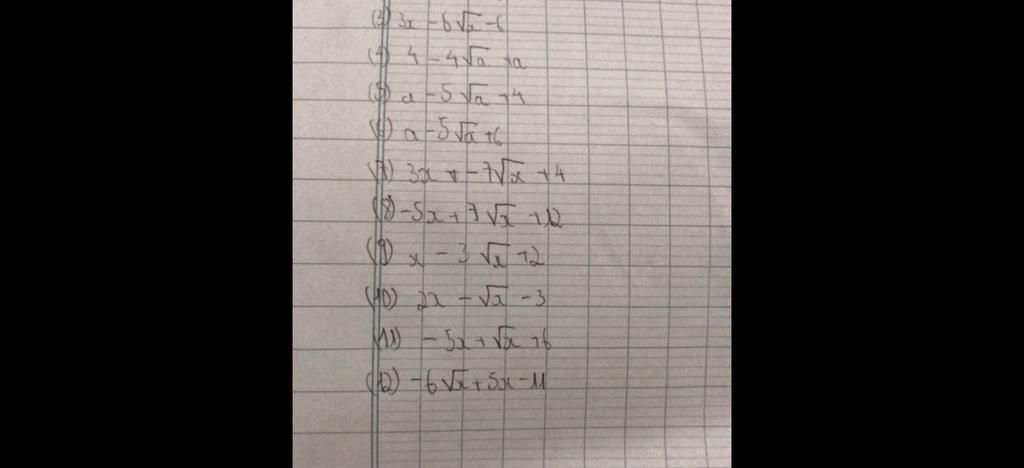 (3) 3x - 6√x - 6
(4) 4 - 4√a + a
(5) a - 5√a + 4
(6) a - 5√a + 6
(7) 3x + - 7√x + 4
(8) -5x + 7√x + 12
(9) x - 3√x + 2
(10) 2x - √x - 3
(11) - 5x + √x + 6
(12) -6√x + 5x - 11